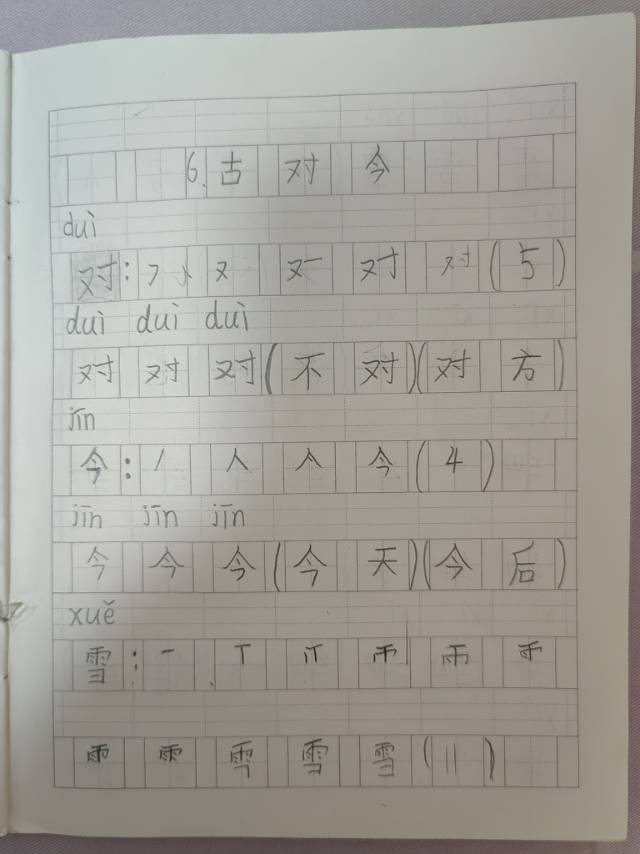 6. 古对今
duì
对: ㇇ 又 又一 对 对 (5)
duì duì duì
对 对 对 (不对)(对方)
jīn
今: 丿 人 亼 今 (4)
jīn jīn jīn
今 今 今 (今天)(今后)
xuě
雪: 一
雪 雪 (11)